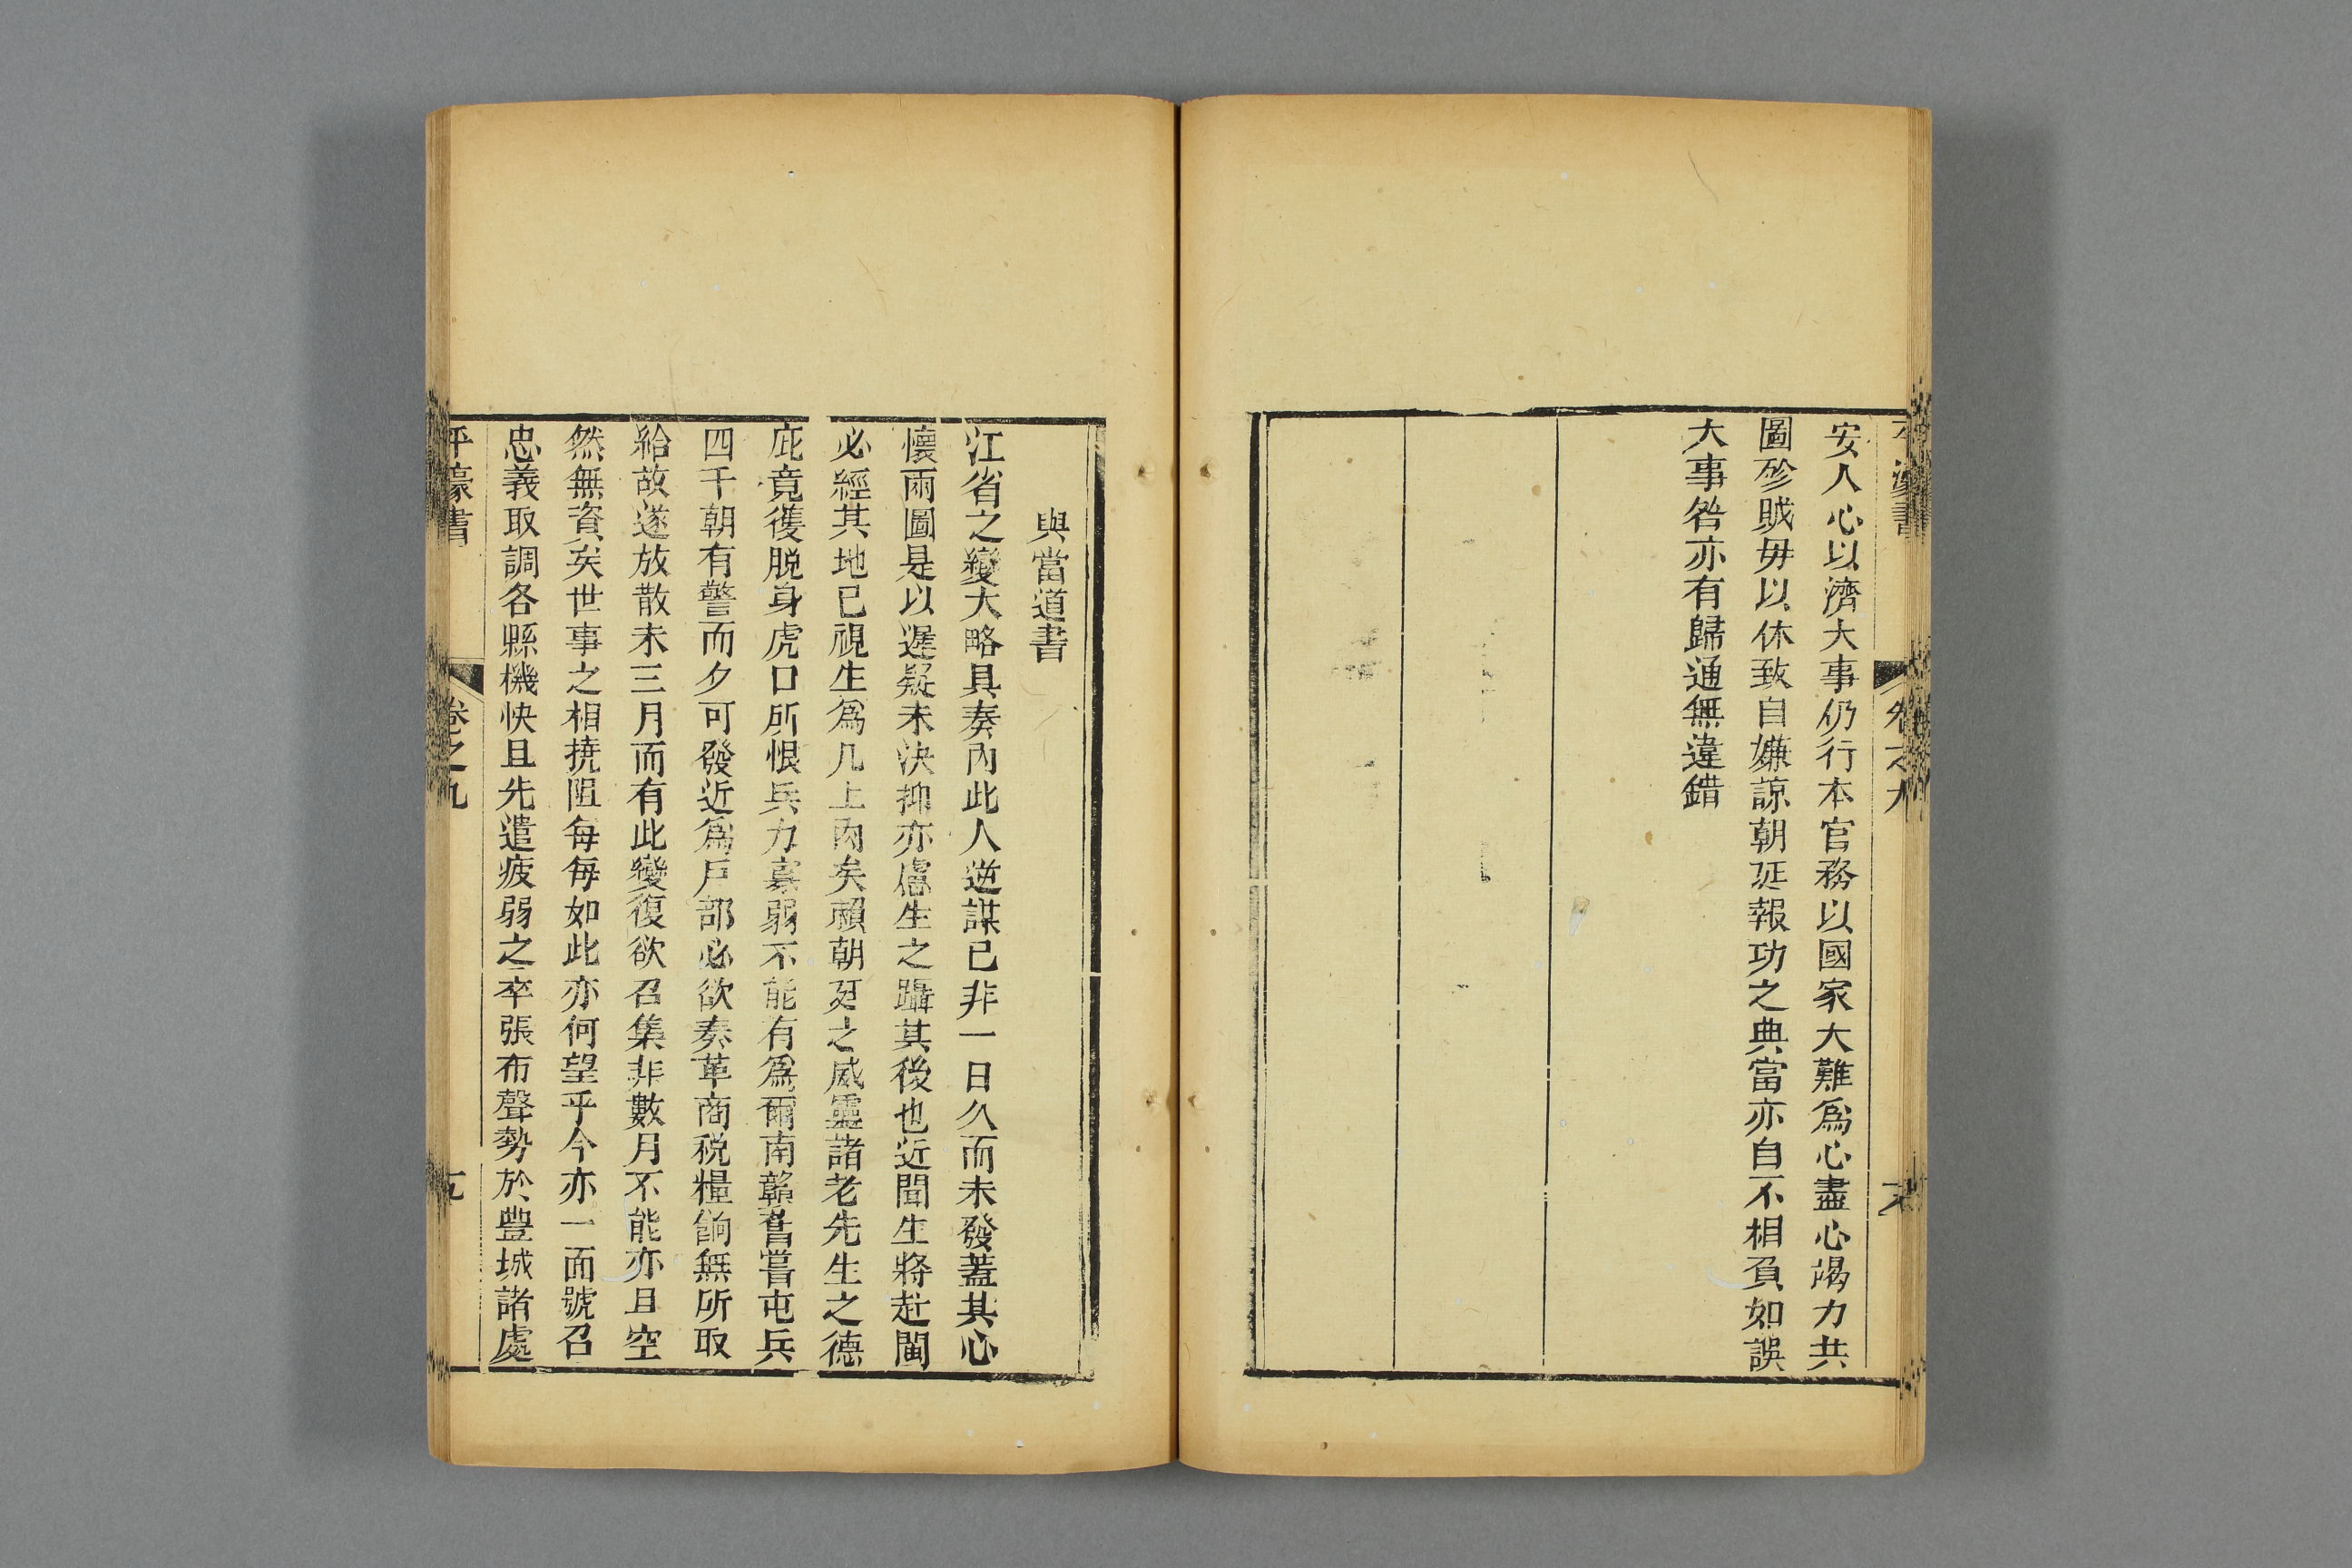 平濠書 卷之九
安人心以濟大事仍行本官務以國家大難爲心盡心竭力共
圖殄賊毋以休致自嫌諒朝廷報功之典當亦自不相負如誤
大事咎亦有歸通無違錯
與當道書
江省之變大略具奏內此人逆謀已非一日久而未發蓋其心
懷兩圖是以遲疑未決抑亦慮生之躡其後也近聞生將赴閩
必經其地已視生爲几上肉矣賴朝廷之威靈諸老先生之德
庇竟獲脫身虎口所恨兵力寡弱不能有爲爾南贛舊嘗屯兵
四千朝有警而夕可發近爲戶部必欲奏革商稅糧餉無所取
給故遂放散未三月而有此變復欲召集非數月不能亦且空
然無資矣世事之相撓阻每每如此亦何望乎今亦一面號召
忠義取調各縣機快且先遣疲弱之卒張布聲勢於豐城諸處
平濠書 卷之九